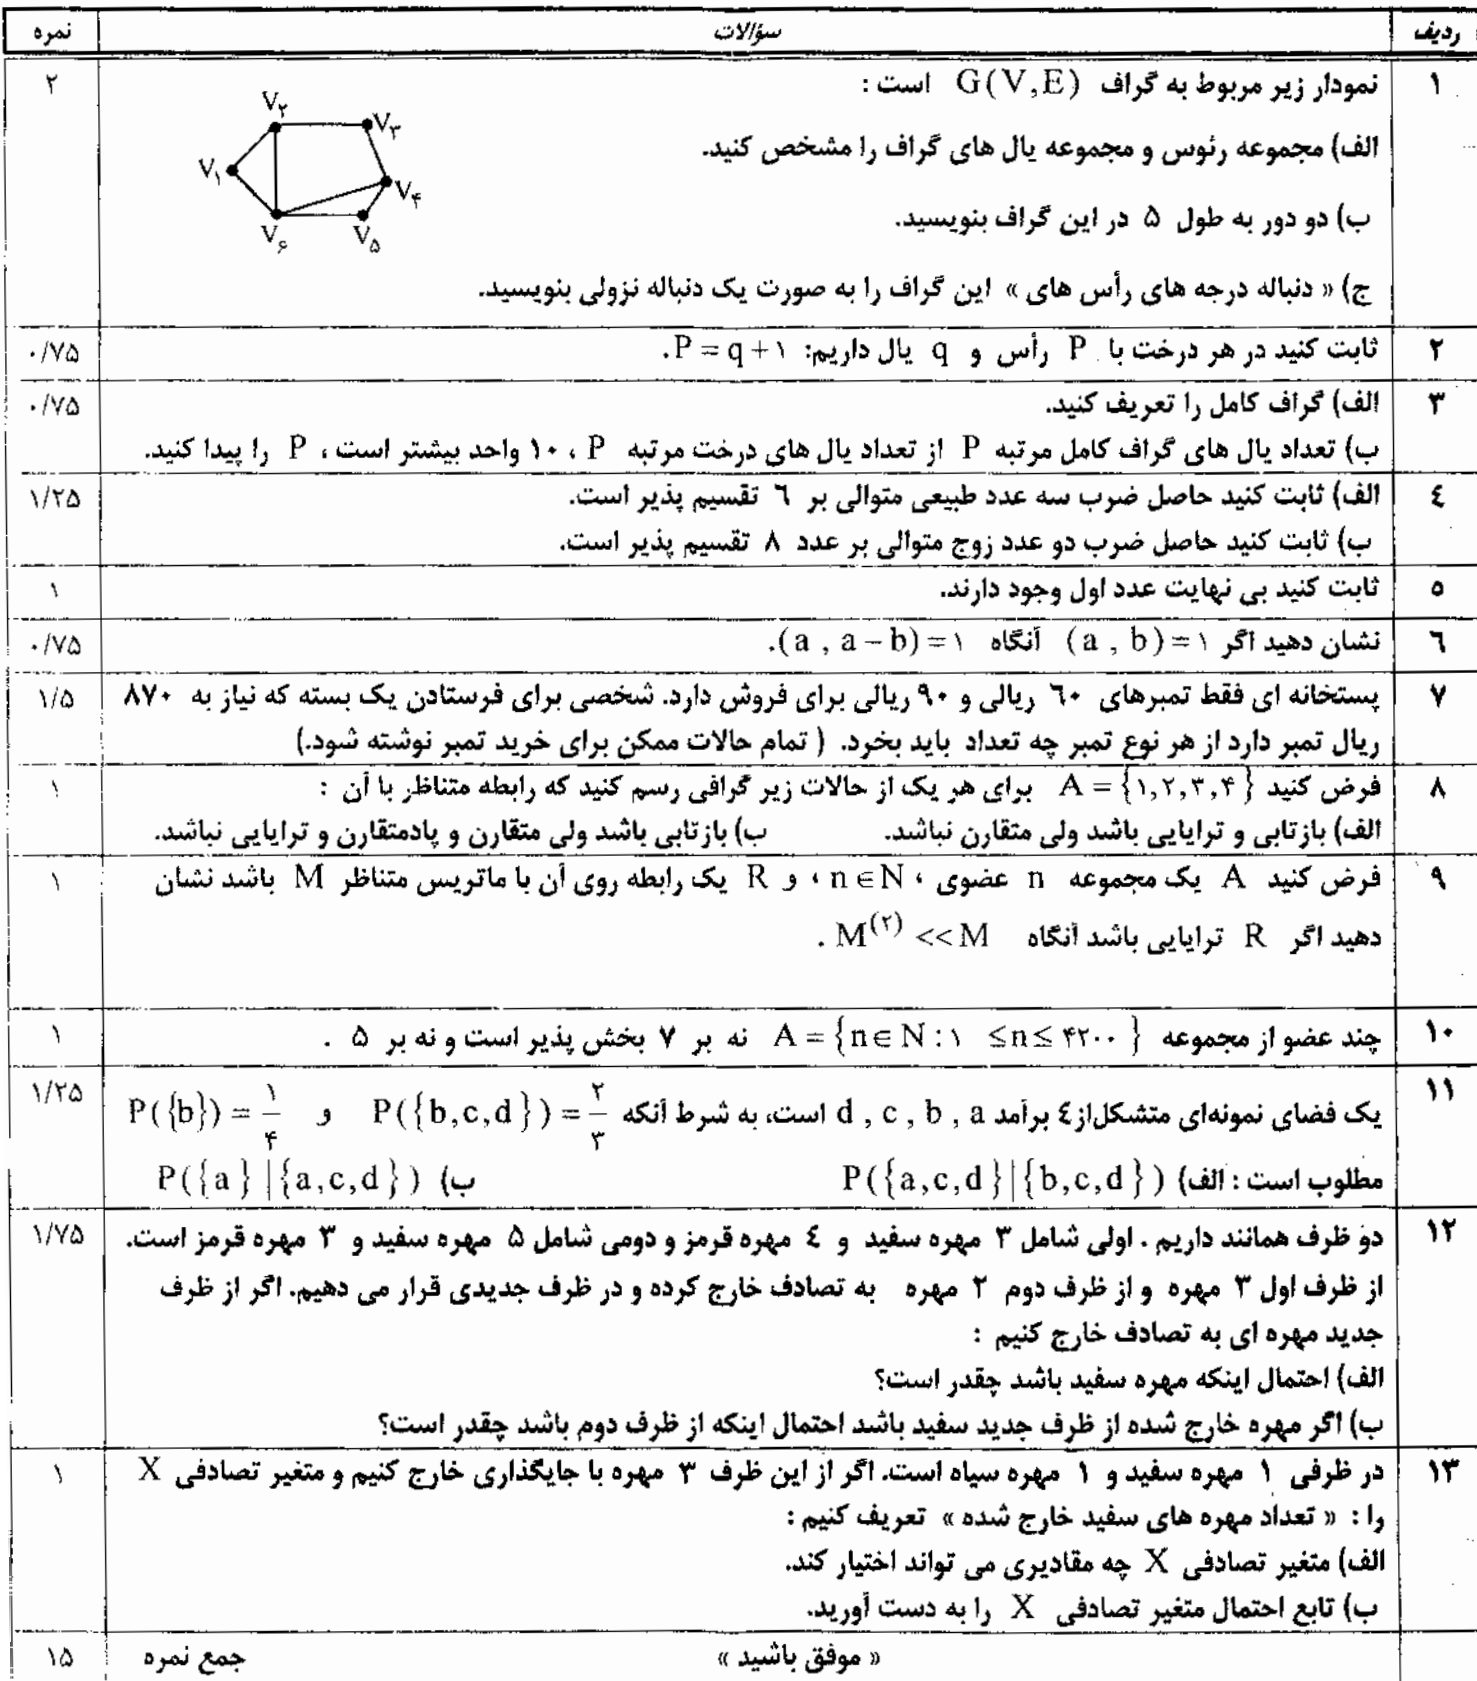 ردیف سؤالات نمره
۱ نمودار زیر مربوط به گراف G(V,E) است : ۲
V۲ V۳
V۱ V۴
V۶ V۵
الف) مجموعه رئوس و مجموعه یال های گراف را مشخص کنید.
ب) دو دور به طول ۵ در این گراف بنویسید.
ج) « دنباله درجه های رأس های » این گراف را به صورت یک دنباله نزولی بنویسید.
۲ ثابت کنید در هر درخت با P رأس و q یال داریم: P = q + ۱. ۰/۷۵
۳ الف) گراف کامل را تعریف کنید. ۰/۷۵
ب) تعداد یال های گراف کامل مرتبه P از تعداد یال های درخت مرتبه P ، ۱۰ واحد بیشتر است ، P را پیدا کنید.
٤ الف) ثابت کنید حاصل ضرب سه عدد طبیعی متوالی بر ٦ تقسیم پذیر است. ۱/۲۵
ب) ثابت کنید حاصل ضرب دو عدد زوج متوالی بر عدد ۸ تقسیم پذیر است.
٥ ثابت کنید بی نهایت عدد اول وجود دارند. ۱
٦ نشان دهید اگر (a , b) = ۱ آنگاه (a , a − b) = ۱. ۰/۷۵
۷ پستخانه ای فقط تمبرهای ٦۰ ریالی و ۹۰ ریالی برای فروش دارد. شخصی برای فرستادن یک بسته که نیاز به ۸۷۰ ۱/۵
ریال تمبر دارد از هر نوع تمبر چه تعداد باید بخرد. ( تمام حالات ممکن برای خرید تمبر نوشته شود.)
۸ فرض کنید A = {۱,۲,۳,۴} برای هر یک از حالات زیر گرافی رسم کنید که رابطه متناظر با آن : ۱
الف) بازتابی و ترایایی باشد ولی متقارن نباشد. ب) بازتابی باشد ولی متقارن و پادمتقارن و ترایایی نباشد.
۹ فرض کنید A یک مجموعه n عضوی ، n∈N ، و R یک رابطه روی آن با ماتریس متناظر M باشد نشان ۱
دهید اگر R ترایایی باشد آنگاه M^(۲) << M .
۱۰ چند عضو از مجموعه A = {n∈N : ۱ ≤n≤ ۴۲۰۰ } نه بر ۷ بخش پذیر است و نه بر ۵ . ۱
۱۱ یک فضای نمونه‌ای متشکل‌از٤ برآمد d , c , b , a است، به شرط آنکه P({b,c,d}) = ۲/۳ و P({b}) = ۱/۴ ۱/۲۵
مطلوب است : الف) P({a,c,d}|{b,c,d}) ب) P({a}|{a,c,d})
۱۲ دو ظرف همانند داریم . اولی شامل ۳ مهره سفید و ٤ مهره قرمز و دومی شامل ۵ مهره سفید و ۳ مهره قرمز است. ۱/۷۵
از ظرف اول ۳ مهره و از ظرف دوم ۲ مهره به تصادف خارج کرده و در ظرف جدیدی قرار می دهیم. اگر از ظرف
جدید مهره ای به تصادف خارج کنیم :
الف) احتمال اینکه مهره سفید باشد چقدر است؟
ب) اگر مهره خارج شده از ظرف جدید سفید باشد احتمال اینکه از ظرف دوم باشد چقدر است؟
۱۳ در ظرفی ۱ مهره سفید و ۱ مهره سیاه است. اگر از این ظرف ۳ مهره با جایگذاری خارج کنیم و متغیر تصادفی X ۱
را : « تعداد مهره های سفید خارج شده » تعریف کنیم :
الف) متغیر تصادفی X چه مقادیری می تواند اختیار کند.
ب) تابع احتمال متغیر تصادفی X را به دست آورید.
« موفق باشید » جمع نمره ۱۵